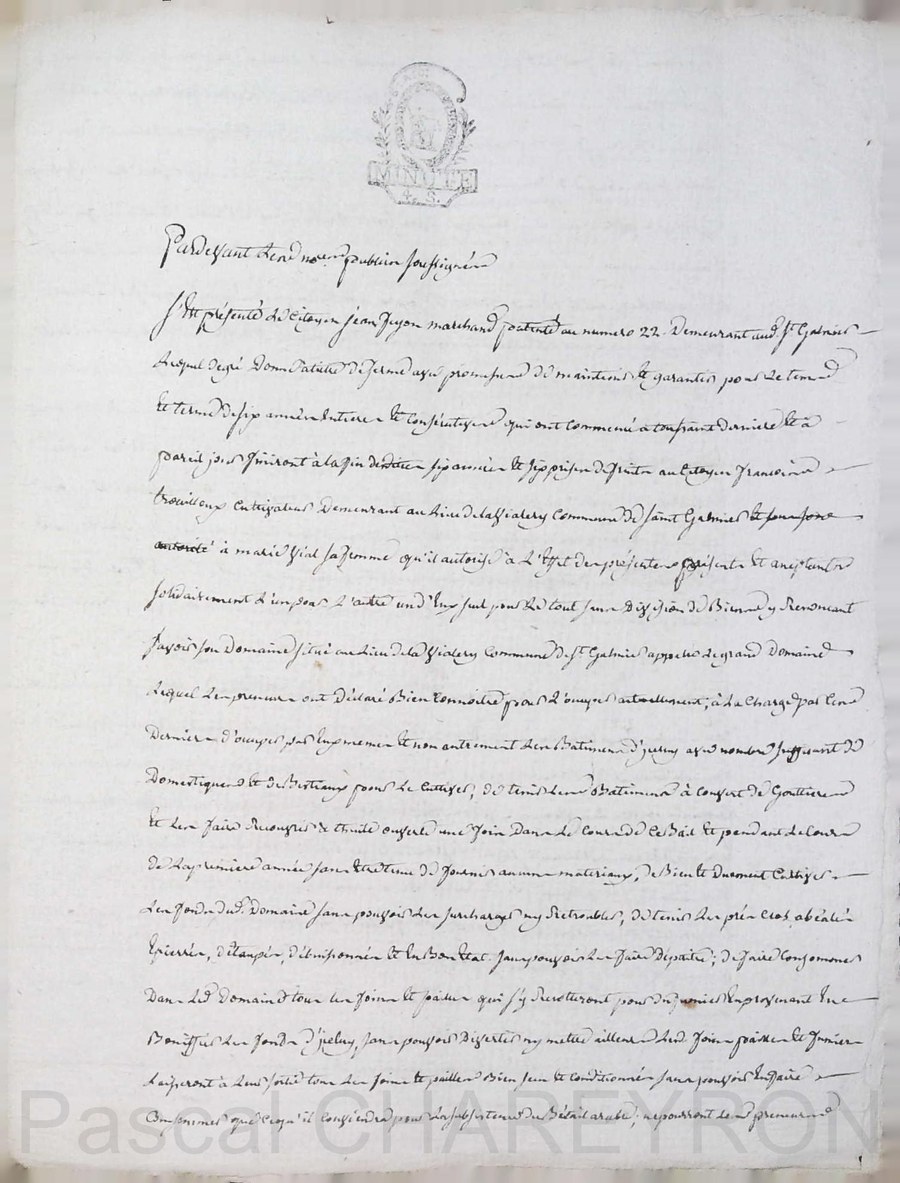 MINUTE
4. S.
Pardevant Le nore public soussigné
S'est présenté Le Citoyen jean guyon marchand patenté au numero 22. Demeurant aud. St. Galmier
Lequel degré Donne atitre de ferme avec promesse de maintenir et garantir pour Le tems
Et terme de six années Entieres et Consécutives qui ont Commencé a toussaint derniere et à
pareil jour finiront à la fin desdites six années et six prises de fruits au Citoyen francois
trouilleux Cultivateur Demeurant au Lieu de la Vialery Commune de saint Galmier et sous son
autorité à marie Vial sa femme qu'il autorise à L'Effet des présentes présents et acceptants
solidairement L'un pour L'autre un d'Eux seul pour Le tout sans Division de Biens y Renoncant
savoir son Domaine situé au Lieu de la Vialery Commune de St. Galmier appellé Le grand Domaine
Lequel Les preneurs ont Déclaré Bien Connoitre pour L'ocuper actuellement; à La Charge par Ces
Derniers d'ocuper par Euxmemes et non autrement Les Batimens d'jceluy avec nombre suffisant de
Domestiques et de Bestiaux pour Le Cultiver; de tenir Les Batimens à Couvert de Gouttieres
Et Les faire Recouvrir à thuile ouverte une fois Dans Le Cours de Ce Bail et pendant Le Cours
de La premiere année sans Etre tenus de fournir aucuns materiaux, de Bien et Duement Cultiver
Les fonds dud. Domaine sans pouvoir Les surcharger ny Retroubler, de tenir Les prés Clos, abéalés
Epierrés, d'étaupés, d'ébuissonnés Et En Bon Etat. sans pouvoir Les faire Dépaitre; de faire Consommer
Dans Led. Domaine tous Les foins Et pailles qui s'y Recolteront pour du fumier En provenant En
Boniffier Les fonds d'jceluy, sans pouvoir Divertir ny mettre ailleurs Lesd. foins pailles et fumiers
Laisseront à Leur sortie tous Les foins et pailles Bien secs et Conditionnés sans pouvoir En faire
Consommer que Ceux qu'il Conviendra pour La subsistence du Bétail arable; ne pourront Les preneurs
Pascal CHAREYRON